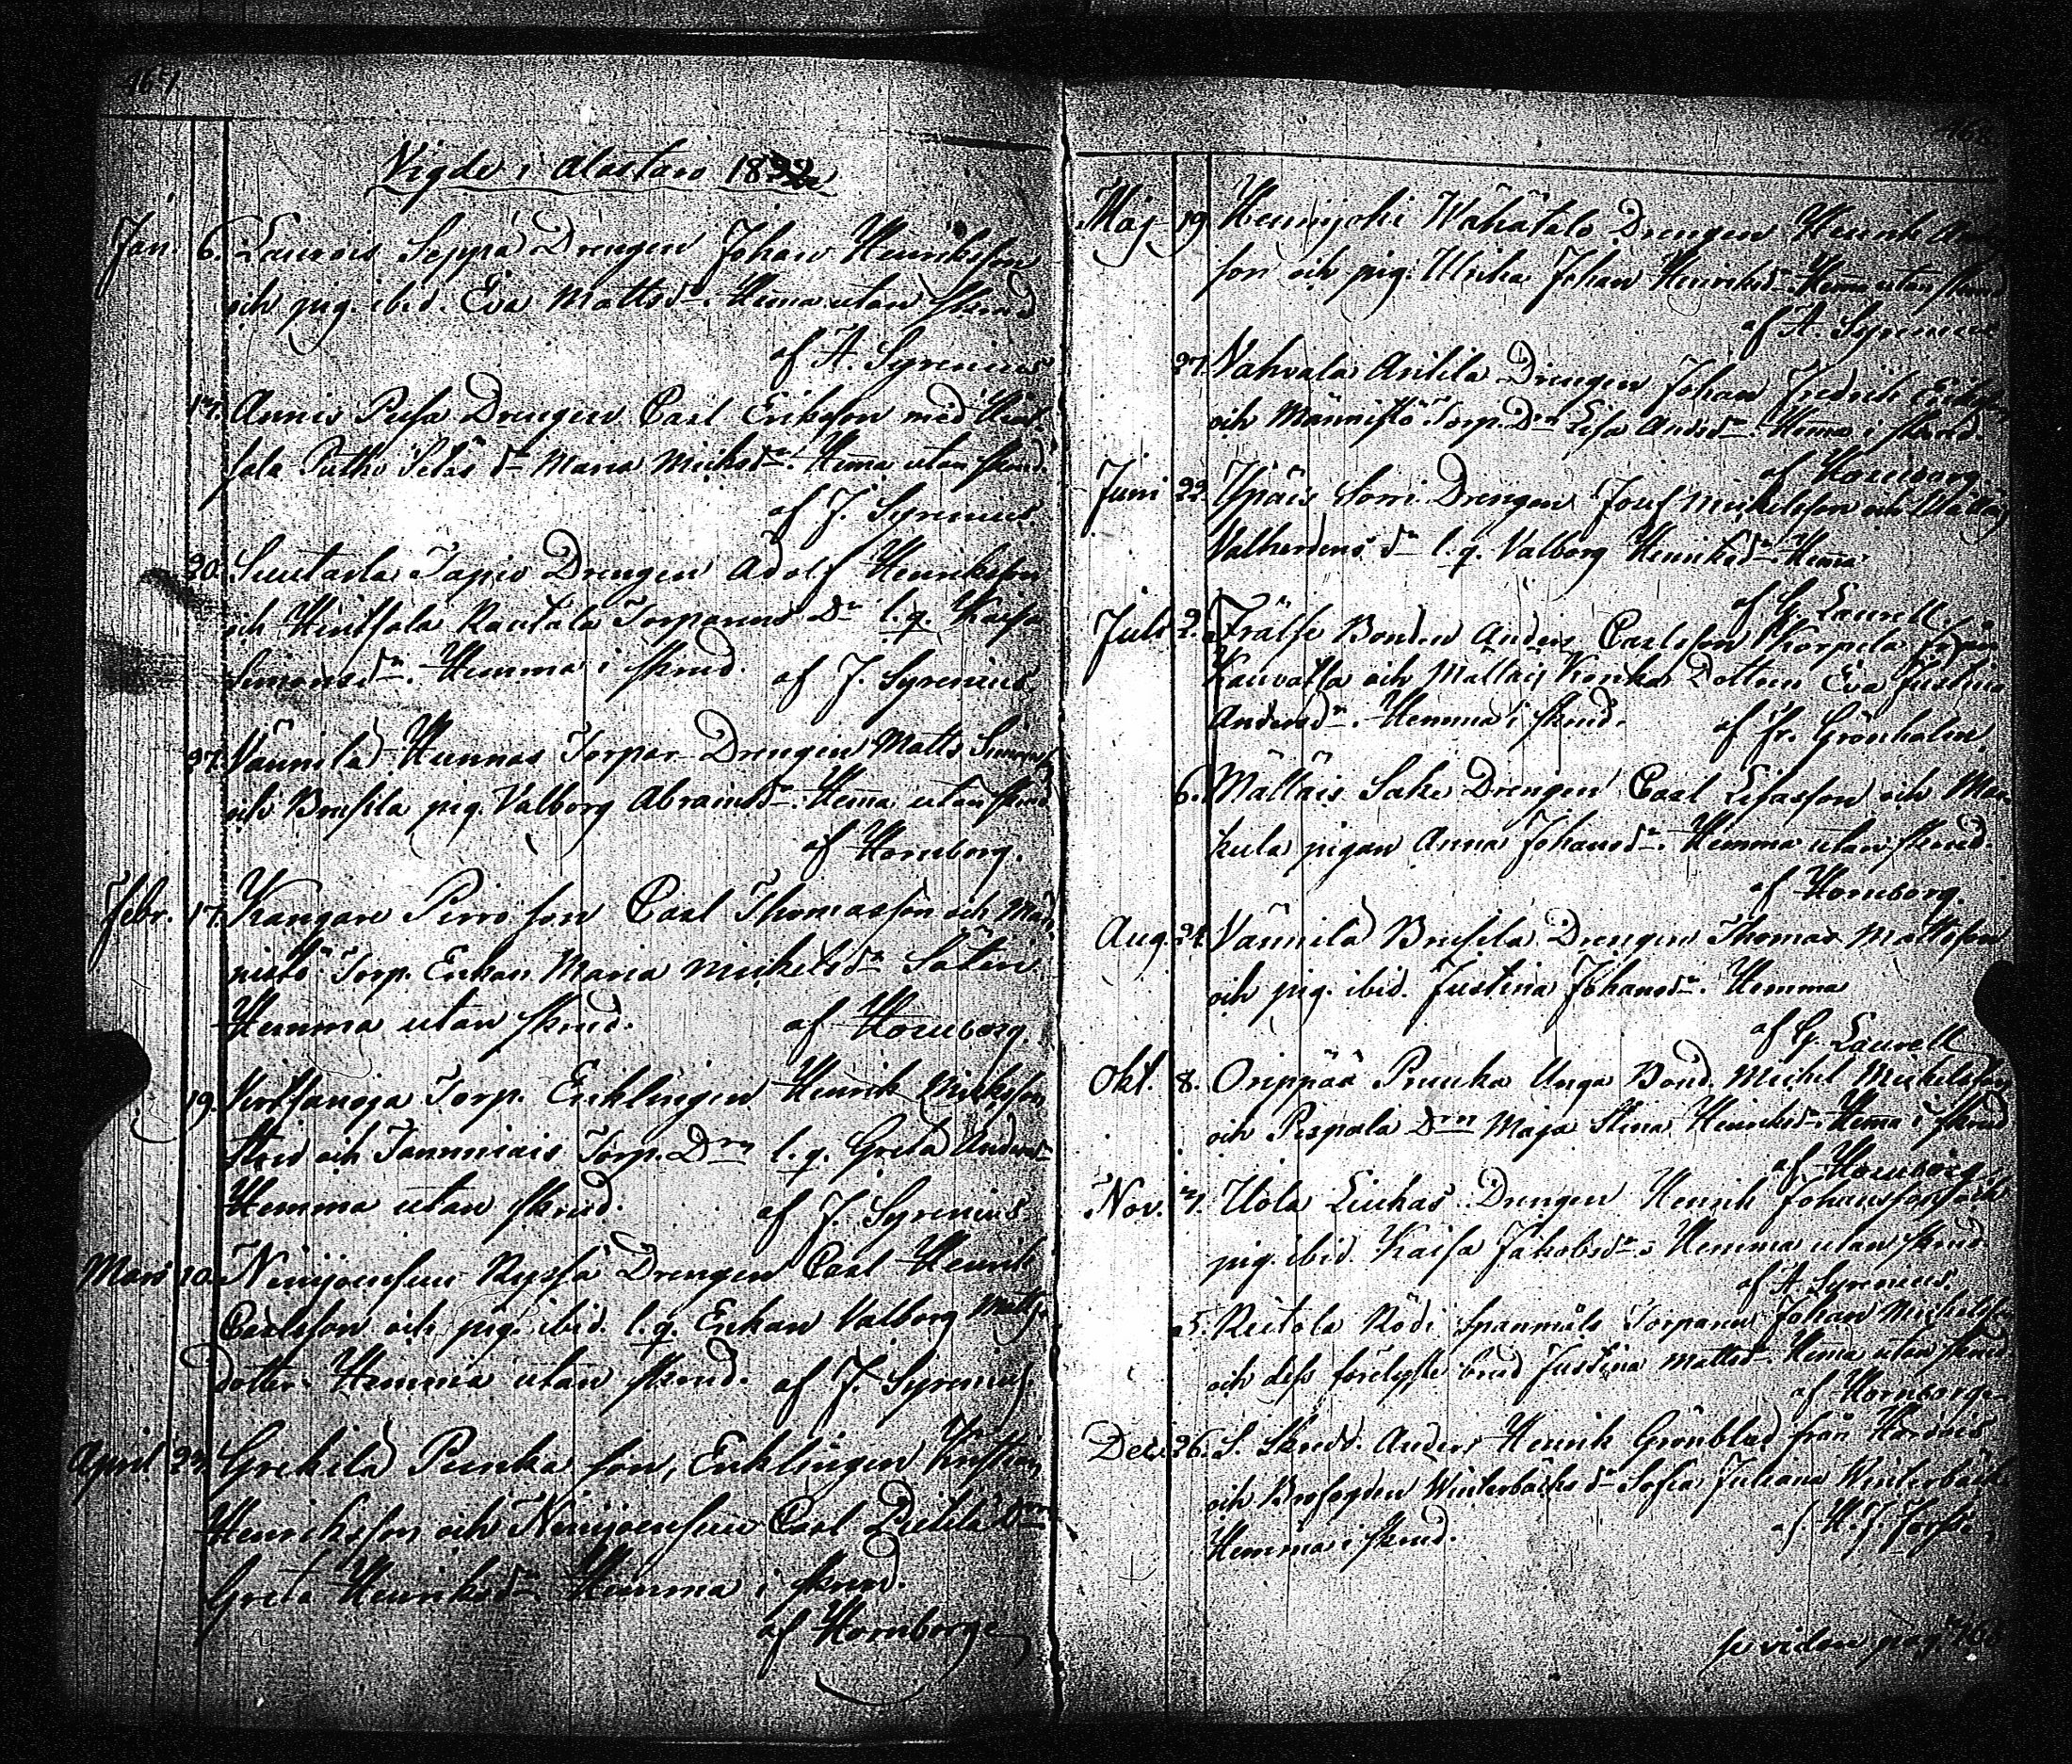 Vigde i Alastaro 18
Jan. 6. Laurois Seppä Drengen Johan Henriksson
och pig. ibid. Eva Mattsdr. Hema utan skrud
af A. Syrenius
17. Annis Pusa Drengen Carl Eriksson med
Maria Micksdr. Hema utan skrud.
af J. Syrenius.
20. Suutarla Tapio Drengen Adolf Henriksson
och Hirtsala Rautala Torparens Dr l.q. Kaisa
Simonsdr. Hemma i skrud. af J. Syrenius
27. Vännilä Hunnas Torpar Drengen Matts
och Brusila pig. Valborg Abramsdr. Hema utan skrud
af Hornborg.
Febr. 17. Kangare Pirro son Carl Thomasson och Män
nistö Torp. Enkan Maria Mickelsdr Säten
Hemma utan skrud. af Hornborg.
19. Virtsanoja Torp. Enklingen Henrik Micksson
och Tammiais Torp. Drn l.q. Greta Andersdr
Hemma utan skrud. af J. Syrenius
Mars 10. Niinijoensuu Ryssä Drengen Carl Henrik
Carlsson och pig. ibid. l.q. Enkan Valborg Matts
dotter Hemma utan skrud. af J. Syrenius
April 23. Grekilä Punka son, Enklingen Kristian
Henriksson och Niinijoensuu Carl Pietilä Drn
Greta Henriksdr Hemma i skrud.
af Hornborg
Maj 19. Hennijoki Wähätalo Drengen Henrik
son och pig. Ulrika Johan Henriksdr. Hema utan skrud
af A. Syrenius
27. Vahvala Anttila Drengen Johan Fredrik Eriksson
och Männistö Torp. Drn Lisa Andsdr. Hema i skrud.
af Hornborg
Juni 22. Ypäis Sorri Drengen Josef Mickelsson och
dr l.q. Valborg Henriksdr. Hema
af G. Laurell
Juli 2. Frälse Bonden Anders Carlsson Korpela från
Kauvatsa och Mältäis Konka Dottren Eva Justina
Andersdr. Hemma i skrud. af Fr. Grönholm
6. Mältäis Sake Drengen Carl Esasson och
kula pigan Anna Johansdr. Hemma utan skrud.
af Hornborg.
Aug. 24. Vännilä Brusila Drengen Thomas Mattsson
och pig. ibid. Justina Johansdr. Hemma
af G. Laurell
Okt. 8. Oripää Punka Unga Bond. Michel Mickelsson
och Pispala Drn Maja Stina Henriksdr Hema i skrud
af Hornborg
Nov. 7. Uola Luukas Drengen Henrik Johansson och
pig. ibid. Kaisa Jakobsdr. Hemma utan skrud
af A. Syrenius.
25. Reitola Rödi Spanmåls Torparen Johan Mickelsson
och dess förelyste brud Justina Mattsdr. Hema utan skrud
af Hornborg
Dec. 26. S. Skrädd. Anders Henrik Grönblad från
och Brofogden Winterbäcks dr Sofia Juliana Winterbäck
Hemma i skrud. af
se vidare pag.